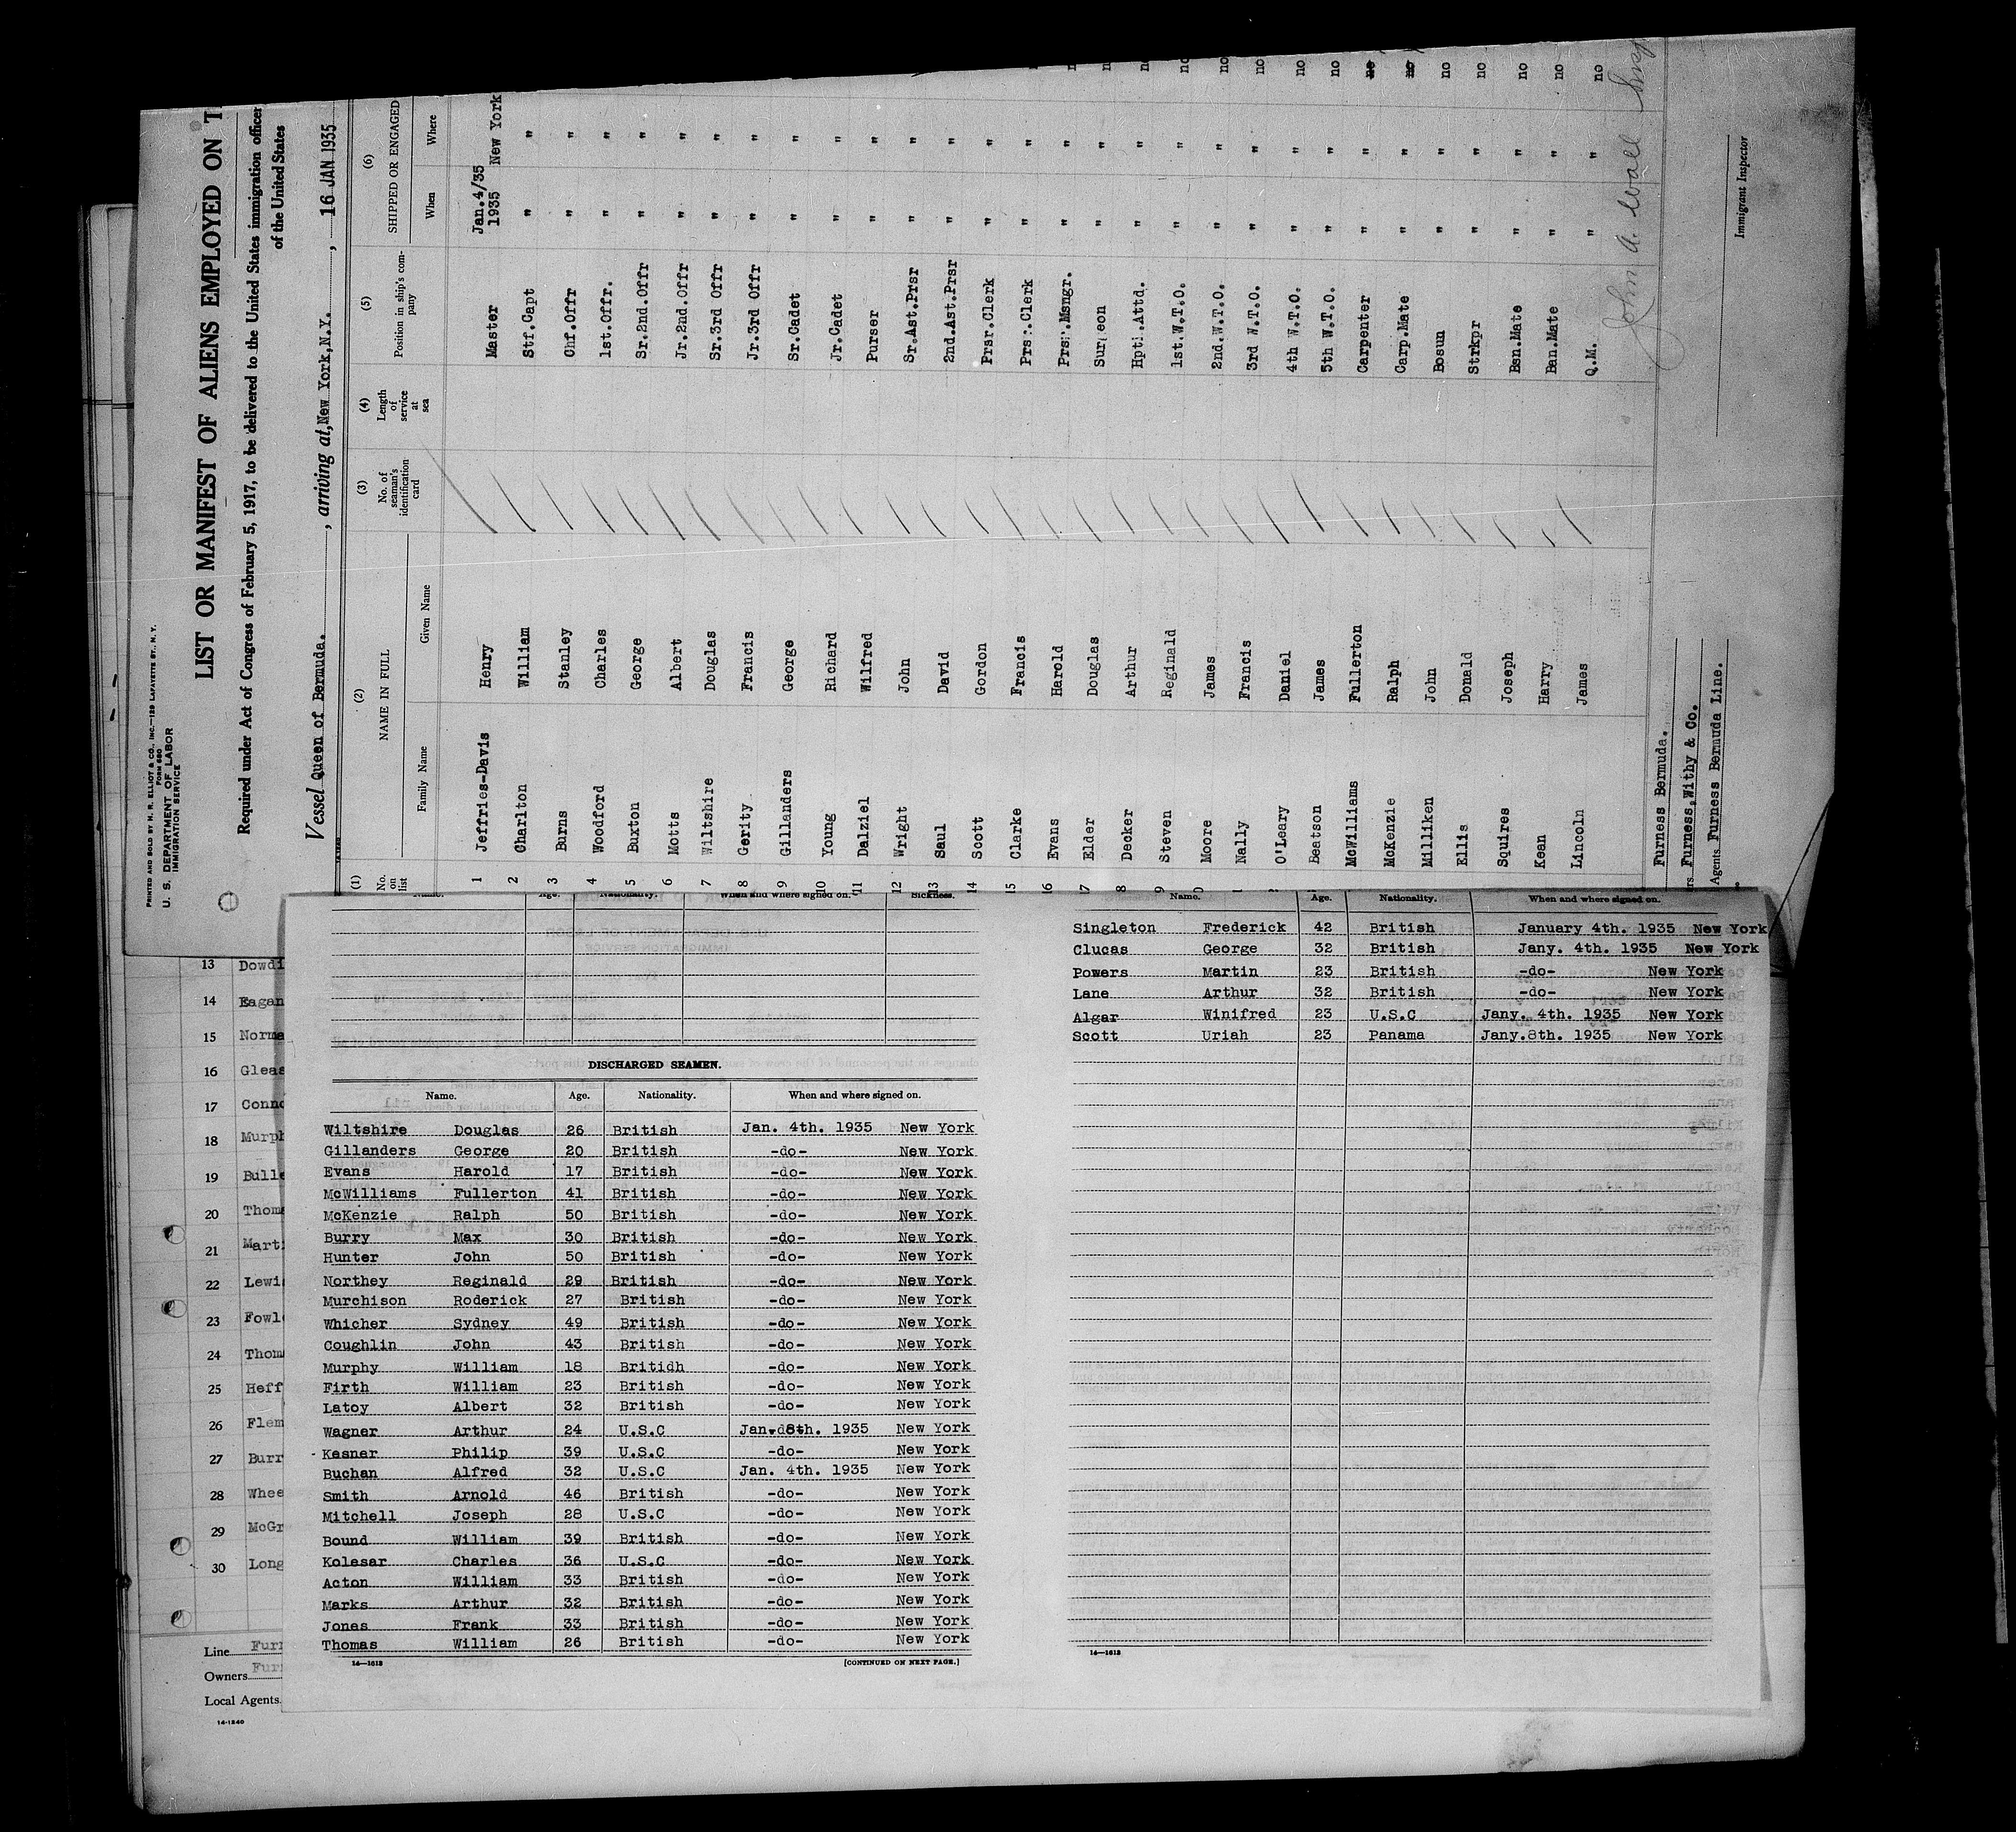 PRINTED AND SOLD BY H. R. ELLIOT & CO., INC.—129 LAFAYETTE ST., N. Y.
FORM 680
U. S. DEPARTMENT OF LABOR
IMMIGRATION SERVICE
LIST OR MANIFEST OF ALIENS EMPLOYED ON T
Required under Act of Congress of February 5, 1917, to be delivered to the United States immigration officer
of the United States
Vessel Queen of Bermuda. , arriving at, New York, N.Y. , 16 JAN 1935
(1) (2) (3) (4) (5) (6)
No. on list NAME IN FULL No. of seaman's identification card Length of service at sea Position in ship's company SHIPPED OR ENGAGED
Family Name Given Name When Where
1 Jeffries-Davis Henry Master Jan.4/35 1935 New York
2 Charlton William Stf.Capt " "
3 Burns Stanley Chf.Offr " " 
4 Woodford Charles 1st.Offr. " "
5 Buxton George Sr.2nd.Offr " "
6 Motts Albert Jr.2nd.Offr " "
7 Wiltshire Douglas Sr.3rd Offr " "
8 Gerity Francis Jr.3rd Offr " "
9 Gillanders George Sr.Cadet " "
10 Young Richard Jr.Cadet " "
11 Dalziel Wilfred Purser " "
12 Wright John Sr.Ast.Prsr " " no
13 Saul David 2nd.Ast.Prsr " " no
14 Scott Gordon Prsr.Clerk " " no
15 Clarke Francis Prsr.Clerk " " no
16 Evans Harold Prsr.Msngr. " " no
7 Elder Douglas Surgeon " " no
8 Decker Arthur Hptl.Attd. " " no
9 Steven Reginald 1st.W.T.O. " " no
0 Moore James 2nd.W.T.O. " " no
1 Nally Francis 3rd W.T.O. " " no
2 O'Leary Daniel 4th W.T.O. " " no
Beatson James 5th W.T.O. " " no
McWilliams Fullerton Carpenter " " no
McKenzie Ralph Carp.Mate " " no
Milliken John Bosun " " no
Ellis Donald Strkpr " " no
Squires Joseph Bsn.Mate " " no
Kean Harry Bsn.Mate " " no
Lincoln James Q.M. " " no
John A. Wall Insp
Immigrant Inspector
Furness Bermuda.
rs. Furness,Withy & Co.
Agents. Furness Bermuda Line.
13 Dowdi
14 Eagan
15 Norma
16 Gleas
17 Conno
18 Murph
19 Bulle
20 Thoma
21 Mart
22 Lewi
23 Fowl
24 Thom
25 Heff
26 Flem
27 Burr
28 Whee
29 McGr
30 Long
Line Furn
Owners Furn
Local Agents.
14-1240
Name. Age. Nationality. When and where signed on. Sickness.
DISCHARGED SEAMEN.
Name. Age. Nationality. When and where signed on.
Wiltshire Douglas 26 British Jan. 4th. 1935 New York
Gillanders George 20 British -do- New York
Evans Harold 17 British -do- New York
McWilliams Fullerton 41 British -do- New York
McKenzie Ralph 50 British -do- New York
Burry Max 30 British -do- New York
Hunter John 50 British -do- New York
Northey Reginald 29 British -do- New York
Murchison Roderick 27 British -do- New York
Whicher Sydney 49 British -do- New York
Coughlin John 43 British -do- New York
Murphy William 18 Britidh -do- New York
Firth William 23 British -do- New York
Latoy Albert 32 British -do- New York
Wagner Arthur 24 U.S.C Jan. 8th. 1935 New York
Kesner Philip 39 U.S.C -do- New York
Buchan Alfred 32 U.S.C Jan. 4th. 1935 New York
Smith Arnold 46 British -do- New York
Mitchell Joseph 28 U.S.C -do- New York
Bound William 39 British -do- New York
Kolesar Charles 36 U.S.C -do- New York
Acton William 33 British -do- New York
Marks Arthur 32 British -do- New York
Jones Frank 33 British -do- New York
Thomas William 26 British -do- New York
14—1613 [CONTINUED ON NEXT PAGE.]
Name. Age. Nationality. When and where signed on.
Singleton Frederick 42 British January 4th. 1935 New York
Clucas George 32 British Jany. 4th. 1935 New York
Powers Martin 23 British -do- New York
Lane Arthur 32 British -do- New York
Algar Winifred 23 U.S.C Jany. 4th. 1935 New York
Scott Uriah 23 Panama Jany.8th. 1935 New York
14—1613